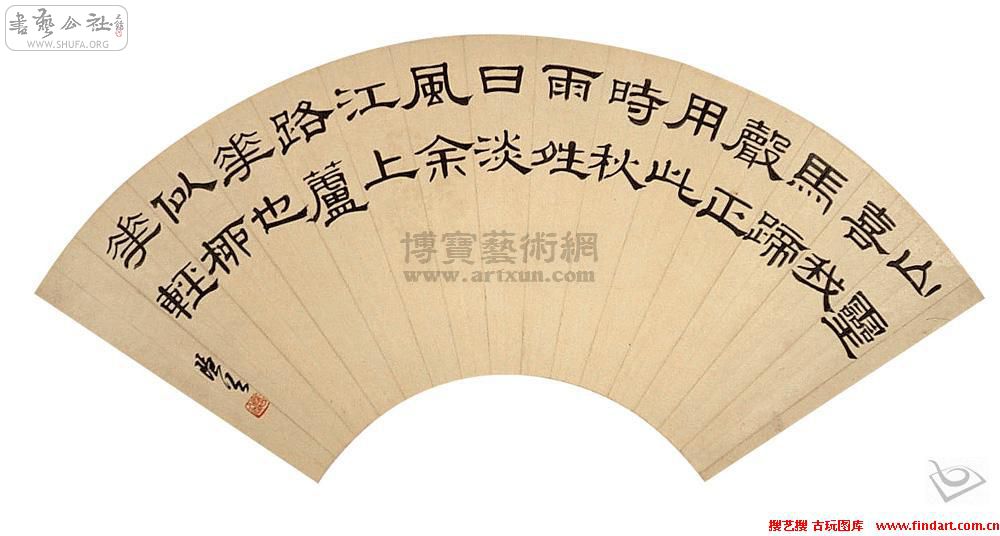 書藝公社
WWW.SHUFA.ORG
山靈
喜我
馬蹄
聲正
用此
時秋
雨夝
日淡
風余
江上
路蘆
華也
似柳
華輕
博寶藝術網
www.artxun.com
搜艺搜 古玩图库 www.findart.com.cn